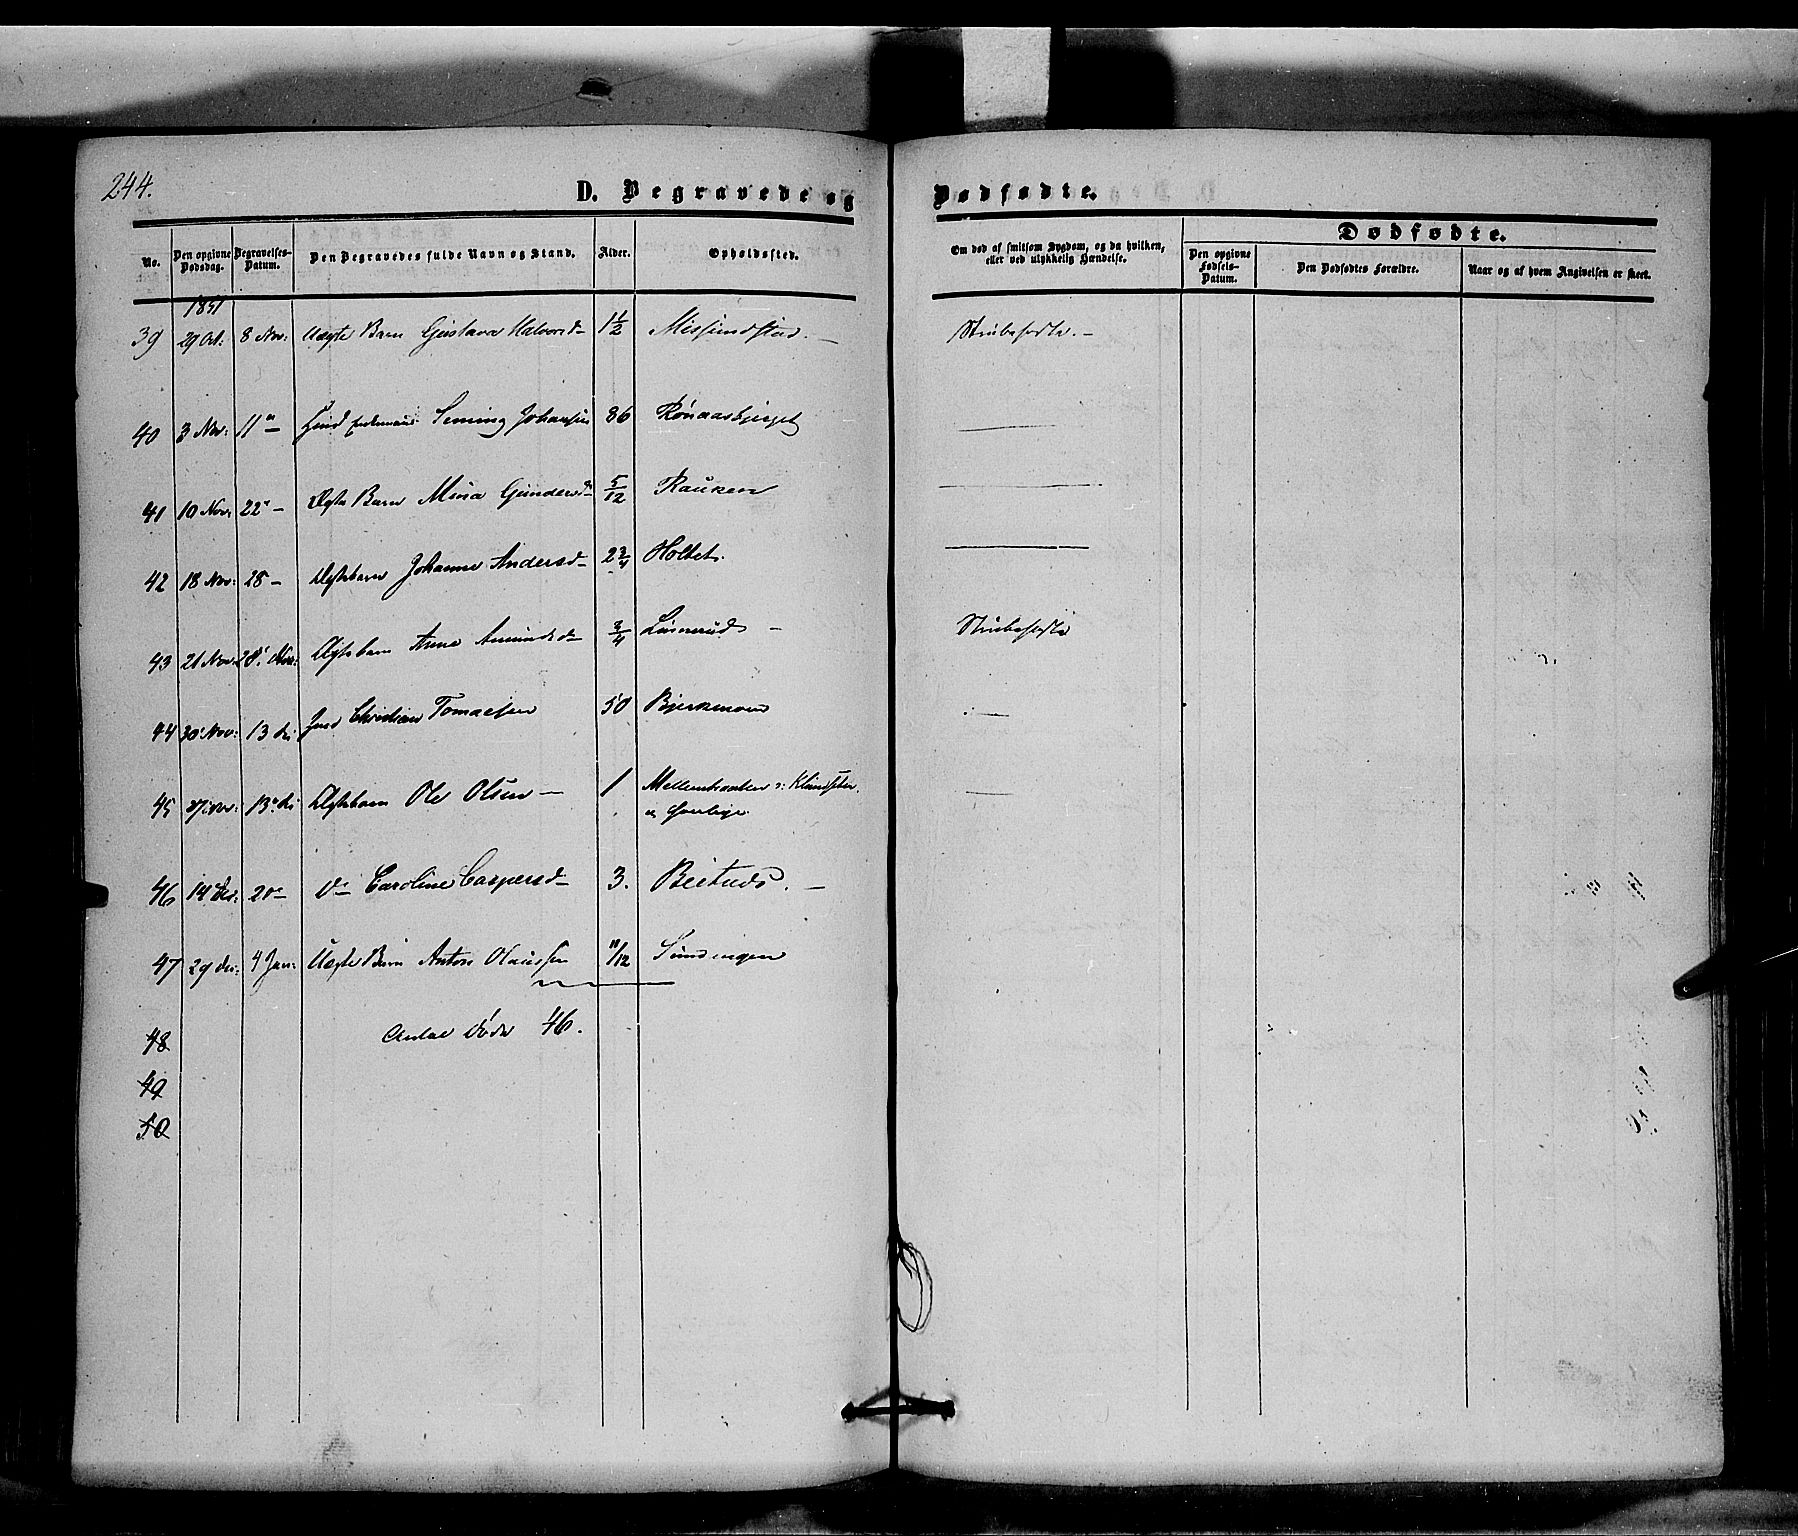 244.
D. Begravede og Dødfødte.
No.
Den opgivne Dødsdag.
Begravelses-Datum.
Den Begravedes fulde Navn og Stand.
Alder.
Opholdssted.
Om død af smitsom Sygdom, og da hvilken, eller ved ulykkelig Hændelse.
Dødfødte.
Den opgivne Fødsels-Datum.
Den Dødfødtes Forældre.
Naar og af hvem Angivelsen er skeet.
1851
39 29 Oct: 8 Nov: Uægte Barn Gustava Halvorsd- 1 1/2 Missundstad. — Strubesyge. -
40 3 Nov: 11 " — Johansen 86 Rønaasbjerget —
41 10 Nov: 22 " - Ægte Barn Mina Gundersd- 5/12 Rauken —
42 18 Nov: 28 - Ægtebarn Johanne Andersd- 2 3/4 Holtet. —
43 21 Nov: 28 Nov: Ægtebarn Anne Amundsd- 3/4 Linnerud - Strubesyge
44 30 Nov: 13 De: Christian Tomaesen 50 Bjerkemoen —
45 Nov: 13 " De: Ægtebarn Ole Olsen - 1 —
46 14 Dec: 20 " - Do Caroline Caspersd- 3. —
47 29 Dec: 4 Jan: Uægte Barn Anton Olaussen 11/12 Sundingen
48 Antal Døde 46.
49
50